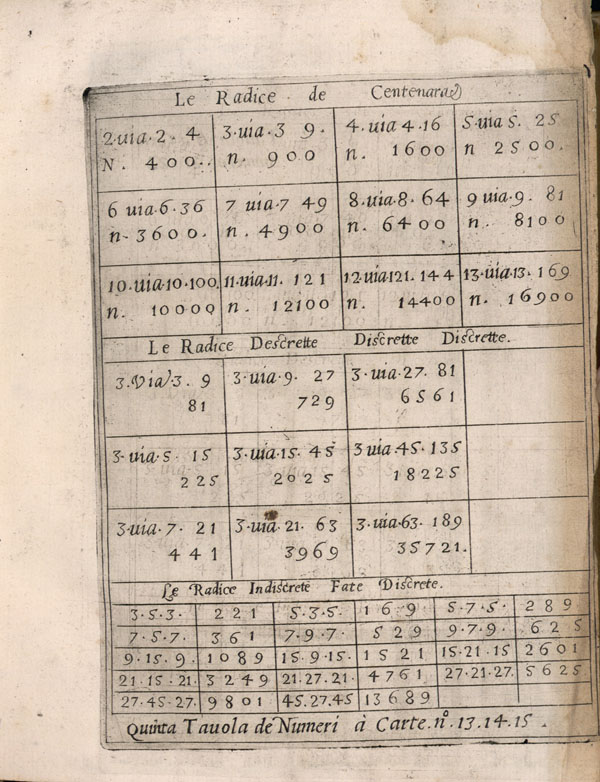 Le Radice de Centenara
2·uia·2· 4 3·uia·3 9· 4·uia 4·16 5·uia 5· 25
N. 400·. n. 900 n. 1600 n 2500.
6 uia·6·36 7 uia·7 49 8·uia·8·64 9 uia·9· 81
n·3600. n. 4900 n. 6400 n. 8100
10·uia·10·100. 11·uia·11· 121 12·uia·121· 144 13·uia·13· 169
n. 10000 n. 12100 n. 14400 n. 16900
Le Radice Descrette Discrette Discrette.
3·Via·3· 9 3·uia·9· 27 3·uia·27· 81
81 729 6561
3·uia·5· 15 3·uia·15· 45 3·uia·45·135
225 2025 18225
3·uia·7· 21 3·uia·21· 63 3·uia·63· 189
441 3969 35721.
Le Radice Indiscrete Fate Discrete.
3·5·3· 221 5·3·5· 169 5·7·5· 289
7·5·7· 361 7·9·7· 529 9·7·9· 625
9·15·9· 1089 15·9·15· 1521 15·21·15 2601
21·15·21· 3249 21·27·21· 4761 27·21·27· 5625
27·45·27· 9801 45·27·45 13689
Quinta Tauola de Numeri à Carte.nº.13.14.15.